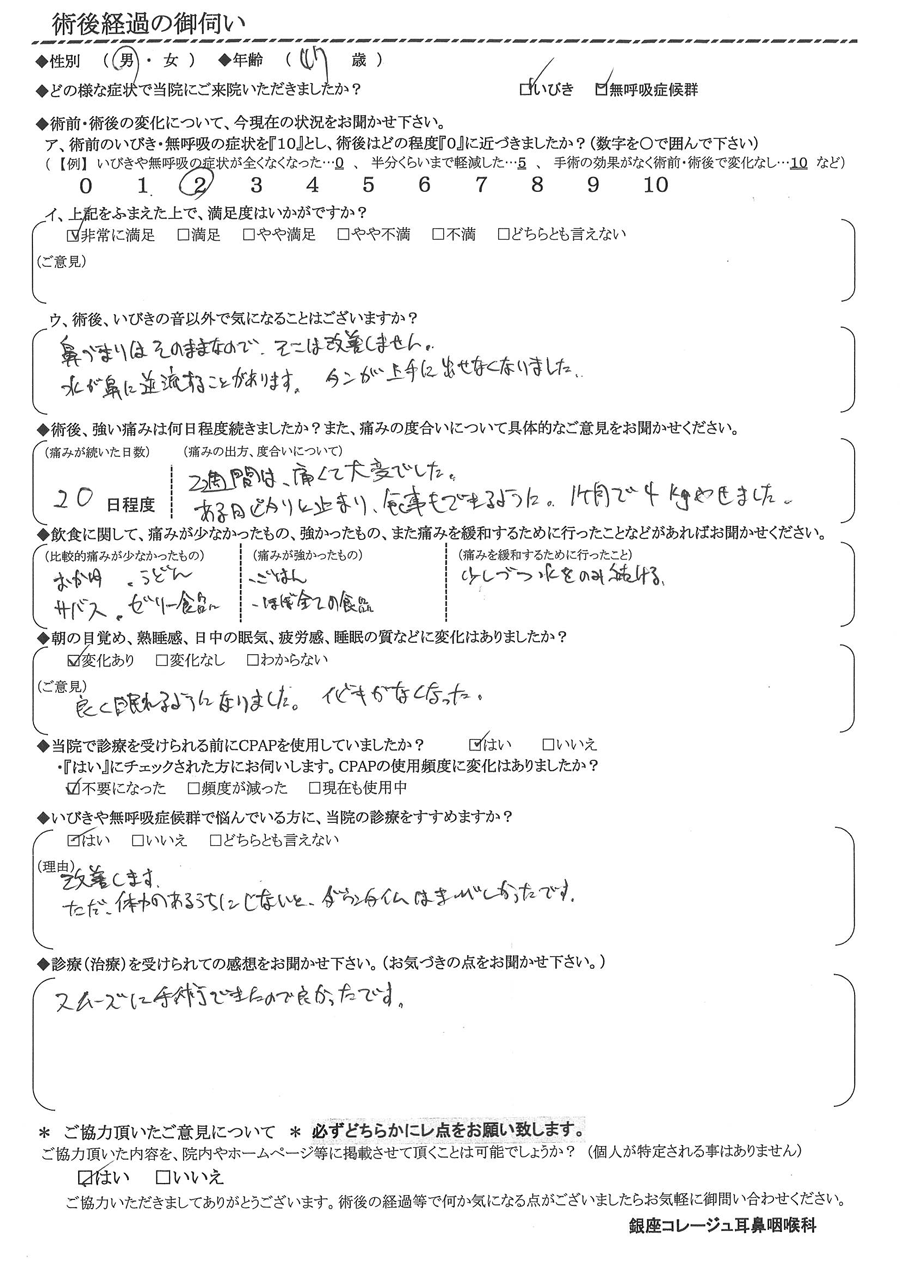 術後経過の御伺い
◆性別 (男・女) ◆年齢 (47 歳)
◆どの様な症状で当院にご来院いただきましたか? ☑いびき ☑無呼吸症候群
◆術前・術後の変化について、今現在の状況をお聞かせ下さい。
ア、術前のいびき・無呼吸の症状を『10』とし、術後はどの程度『0』に近づきましたか?(数字を〇で囲んで下さい)
(【例】いびきや無呼吸の症状が全くなくなった…0 、 半分くらいまで軽減した…5 、 手術の効果がなく術前・術後で変化なし…10 など)
0 1 2 3 4 5 6 7 8 9 10
イ、上記をふまえた上で、満足度はいかがですか?
☑非常に満足 □満足 □やや満足 □やや不満 □不満 □どちらとも言えない
(ご意見)
ウ、術後、いびきの音以外で気になることはございますか?
鼻づまりはそのままなので、そこは改善しません。
水が鼻に逆流することがあります。 タンが上手に出せなくなりました。
◆術後、強い痛みは何日程度続きましたか?また、痛みの度合いについて具体的なご意見をお聞かせください。
(痛みが続いた日数) (痛みの出方、度合いについて)
2週間は、痛くて大変でした。
20 日程度 ある日ピタリと止まり、食事もできるように。1ヶ月で4kgやせました。
◆飲食に関して、痛みが少なかったもの、強かったもの、また痛みを緩和するために行ったことなどがあればお聞かせください。
(比較的痛みが少なかったもの) (痛みが強かったもの) (痛みを緩和するために行ったこと)
おかゆ ・うどん ・ごはん 少しづつ水をのみ続ける。
サバス ・ゼリー食品 ・ほぼ全ての食品
◆朝の目覚め、熟睡感、日中の眠気、疲労感、睡眠の質などに変化はありましたか?
☑変化あり □変化なし □わからない
(ご意見)
良く眠れるようになりました。 イビキがなくなった。
◆当院で診療を受けられる前にCPAPを使用していましたか? ☑はい □いいえ
・『はい』にチェックされた方にお伺いします。CPAPの使用頻度に変化はありましたか?
☑不要になった □頻度が減った □現在も使用中
◆いびきや無呼吸症候群で悩んでいる方に、当院の診療をすすめますか?
☑はい □いいえ □どちらとも言えない
(理由)
改善します。
ただ、体力のあるうちにじないと、ダウンタイムはきびしかったです。
◆診療(治療)を受けられての感想をお聞かせ下さい。(お気づきの点をお聞かせ下さい。)
スムーズに手術できたので良かったです。
* ご協力頂いたご意見について * 必ずどちらかにレ点をお願い致します。
ご協力頂いた内容を、院内やホームページ等に掲載させて頂くことは可能でしょうか? (個人が特定される事はありません)
☑はい □いいえ
ご協力いただきましてありがとうございます。術後の経過等で何か気になる点がございましたらお気軽に御問い合わせください。
銀座コレージュ耳鼻咽喉科